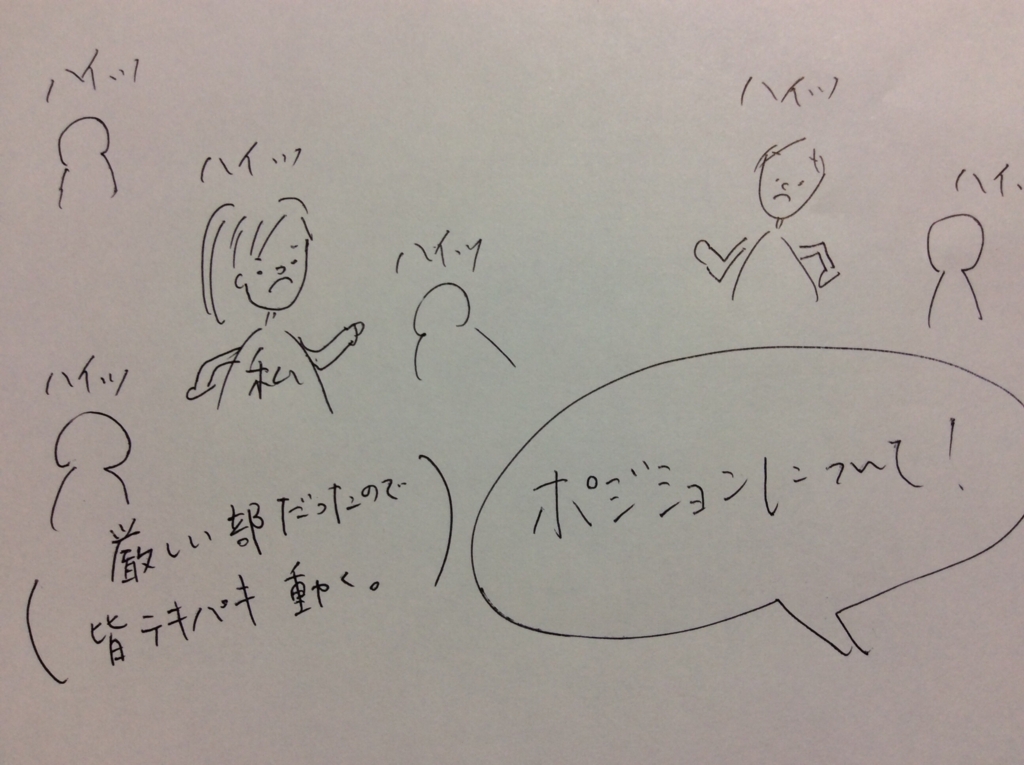 ハイッ
ハイッ
ハイッ
ハイッ
ハイッ
ハイ
私
ポジションについて！
（厳しい部だったので
皆テキパキ動く。）